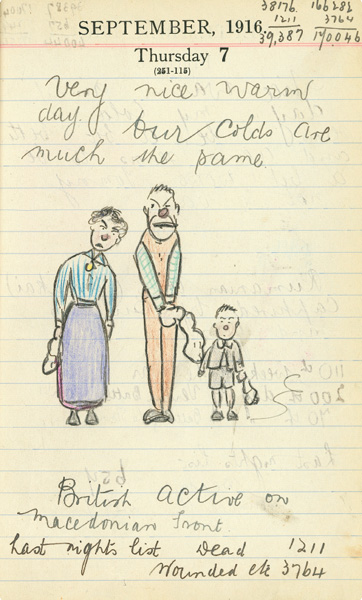 38176. 166282
1211 3764
39,387 170,046
SEPTEMBER, 1916.
Thursday 7
(251-115)
Very nice warm
day. Our colds are
much the same.
British active on
Macedonian front.
Last nights list Dead 1211
Wounded etc 3764